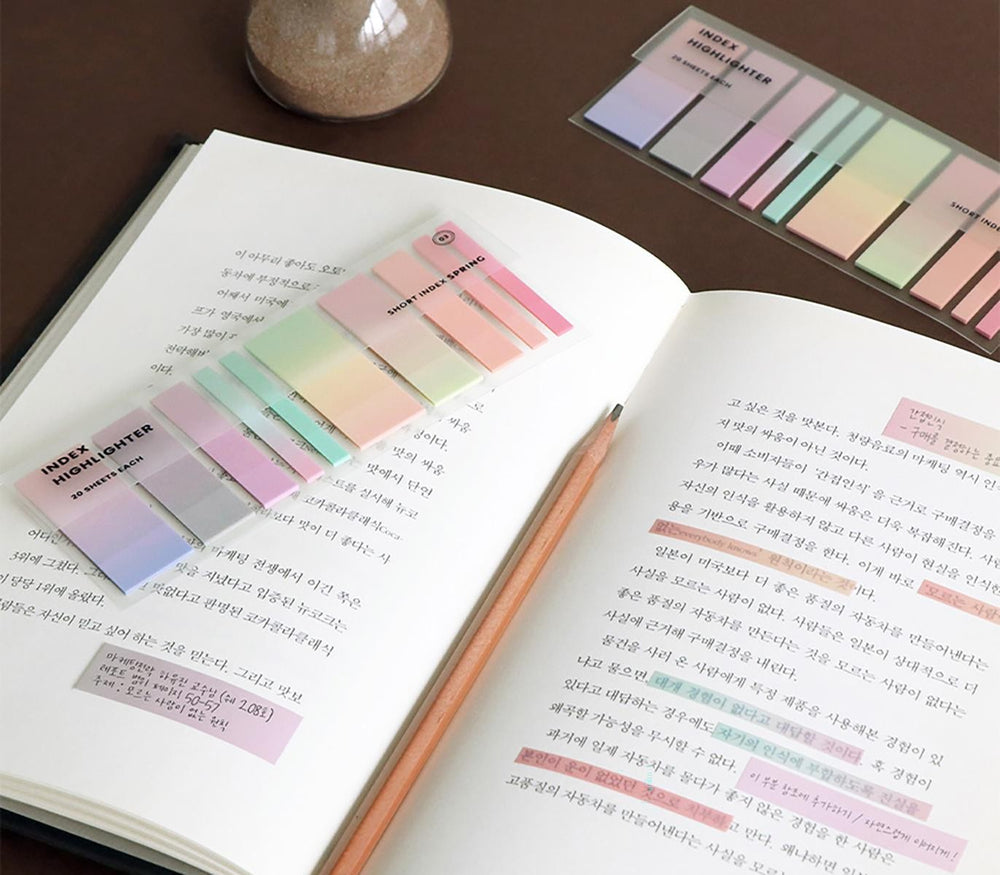 INDEX
HIGHLIGHTER
20 SHEETS EACH
SHORT INDEX SPRING
03
INDEX
HIGHLIGHTER
20 SHEETS EACH
SHORT
이 아무리 좋아도 오토
동차에 부정적으로
어째서 미국에
프가 영국에서
가장 많이
전락해
이다.
맛의 싸움
맛에서 단언
트를 실시해 뉴코
코카콜라클래식(Coca-
보다 맛이 더 좋다는 사
마케팅 전쟁에서 이건 쪽은
3위에 그쳤다.
맛을 지녔다고 입증된 뉴코크는
당당 1위에 올랐다.
맛없다고 판명된 코카콜라클래식
람들은 자신이 믿고 싶어 하는 것을 믿는다. 그리고 맛보
마케팅전략 하유진 교수님 (쉐 208호)
레포트 범위 페이지 50-57
주제 : 모르는 사람이 없는 원칙
고 싶은 것을 맛본다. 청량음료의 마케팅 역시 인
지 맛의 싸움이 아닌 것이다.
이때 소비자들이 '간접인식'을 근거로 구매결정을
우가 많다는 사실 때문에 싸움은 더욱 복잡해진다. 사
자신의 인식을 활용하지 않고 다른 사람이 현실을 인식한
용을 기반으로 구매결정을 한다. 이게 바로 '모르는 사람이
없는everybody knows' 원칙이라는 것이다.
일본이 미국보다 더 좋은 품질의 자동차를 만들어낸다는
사실을 모르는 사람이 없다. 사람들은 일본이 상대적으로 더
좋은 품질의 자동차를 만든다는 것을 모르는 사람이 없다는
사실에 근거해 구매결정을 내린다.
물건을 사러 온 사람에게 특정 제품을 사용해본 경험이 있
냐고 물으면, 대개 경험이 없다고 대답할 것이다. 혹 경험이
있다고 대답하는 경우에도 자기의 인식에 부합하도록 진실을
왜곡할 가능성을 무시할 수 없다.
과거에 일제 자동차를 몰다가 좋지 않은 경험을 한 사람은
본인이 운이 없었던 것으로 치부하고 만다. 왜냐하면 일본
고품질의 자동차를 만들어낸다는 사실을 모르
간접인식
- 구매를 결정하는 중요
이 부분 참조에 추가하기 / 자연스럽게 이어지게!